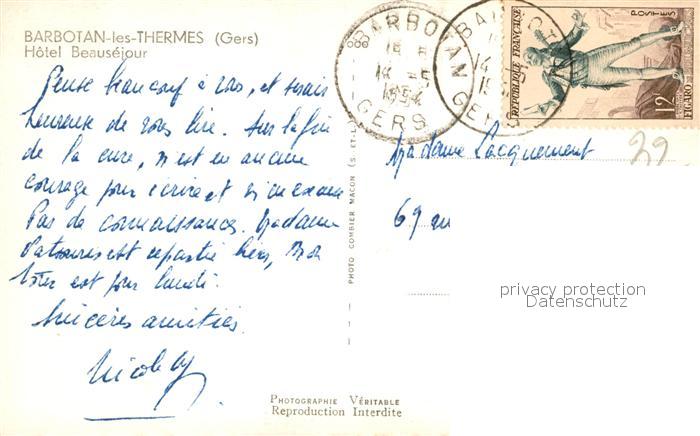 BARBOTAN-les-THERMES (Gers)
Hôtel Beauséjour
Pense beaucoup à vous, et serais
heureuse de vous lire. Sur la fin
de la cure, n est en aucun
courage pour écrire et
Pas de connaissances. Madame
est repartie hier,
est pour lundi.
Sincères amitiés
BARBOTAN
14 - 5
1954
GERS
BARBOTAN
GERS
RÉPUBLIQUE FRANÇAISE
POSTES
12F
FIGARO
Madame Lacquement
69
29
PHOTO COMBIER MACON (S.-ET-L.)
privacy protection
Datenschutz
PHOTOGRAPHIE VÉRITABLE
Reproduction Interdite